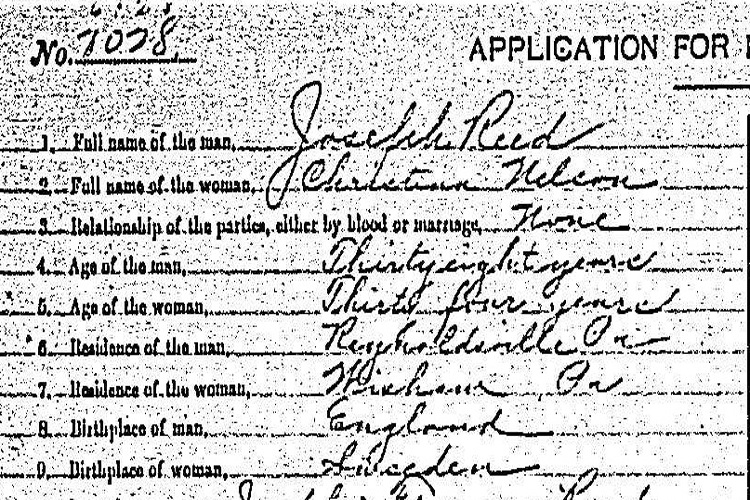 No. 7028.
APPLICATION FOR
1. Full name of the man, Joseph Reed
2. Full name of the woman, Christina Nelson
3. Relationship of the parties, either by blood or marriage, None
4. Age of the man, Thirty eight years
5. Age of the woman, Thirty four years
6. Residence of the man, Reynoldsville Pa
7. Residence of the woman, Pa
8. Birthplace of man, England
9. Birthplace of woman, Sweden